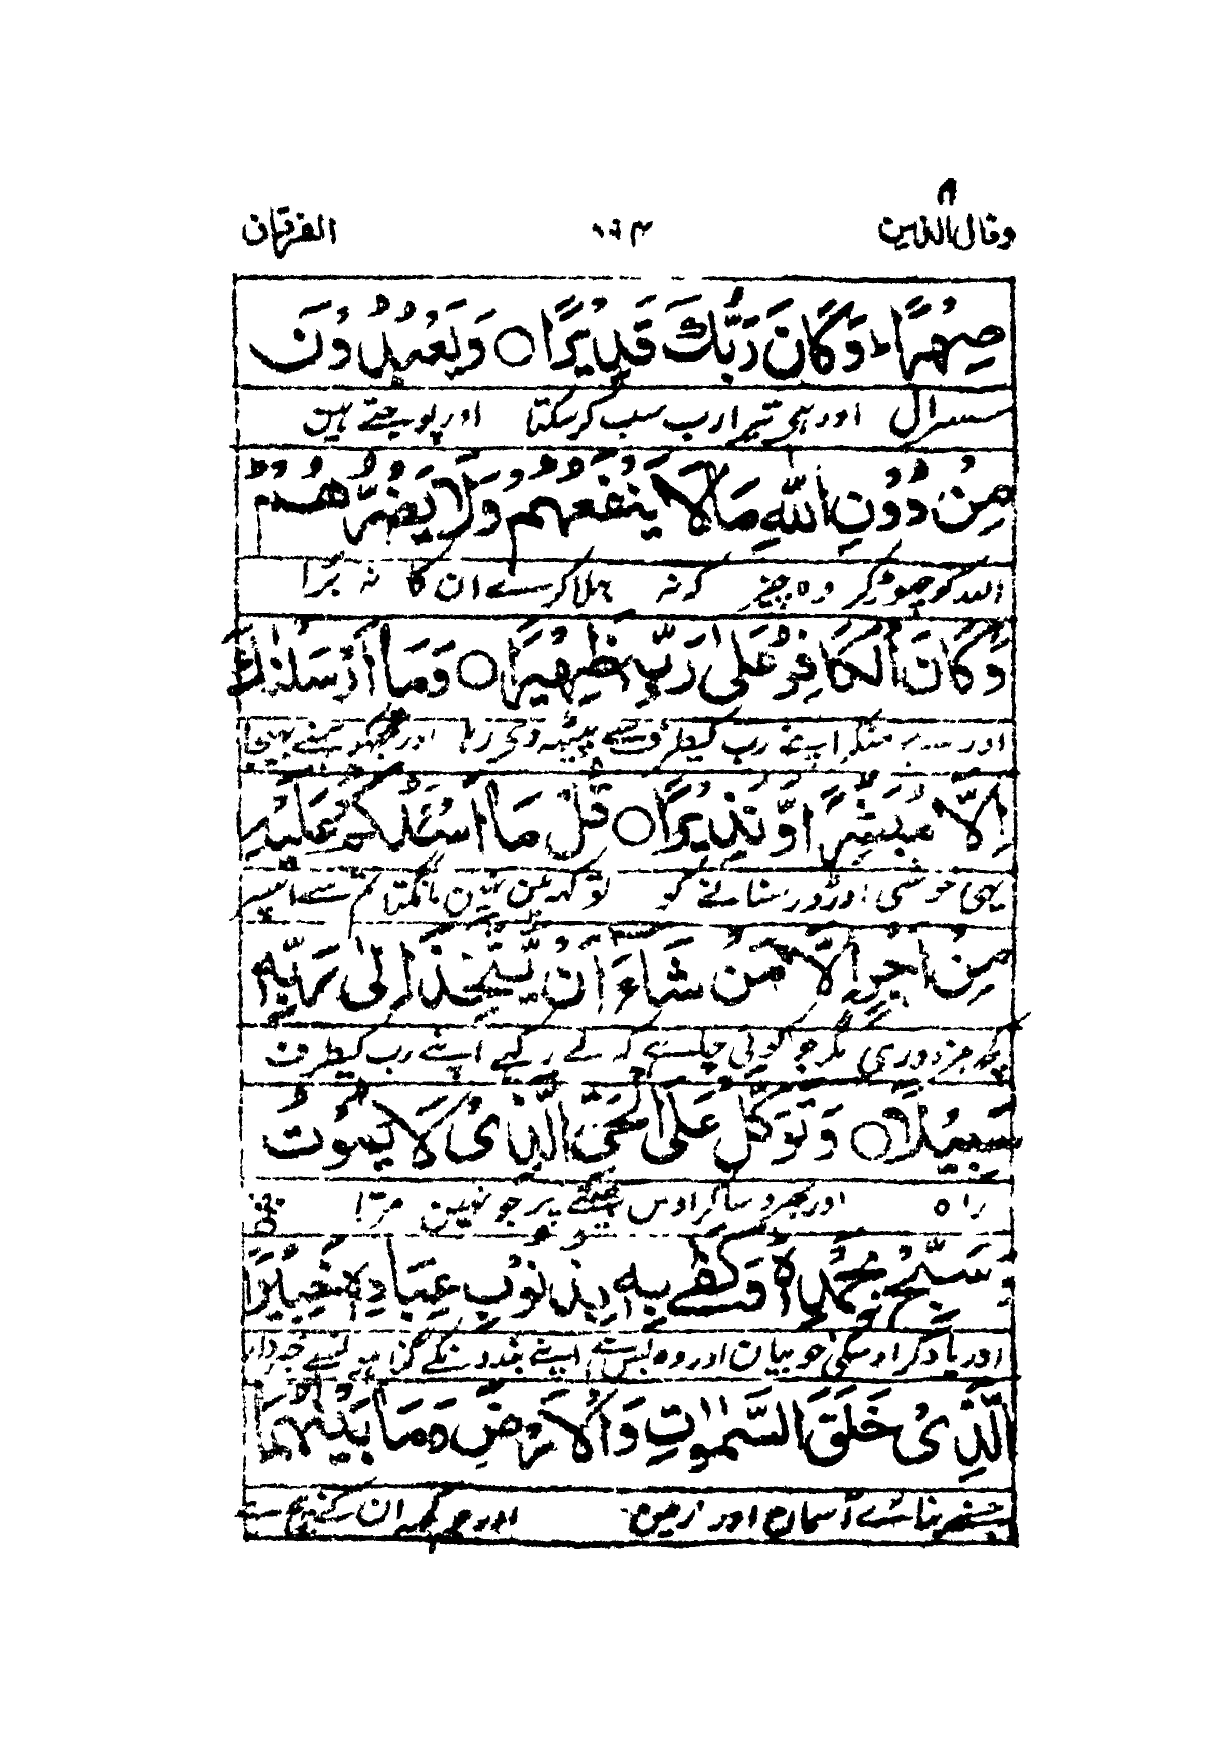 وقال الذين ۱۹۴ الفرقان
صِهْرًا ؕ وَكَانَ رَبُّكَ قَدِيْرًا ○ وَيَعْبُدُوْنَ
سسرال اور ہی تیرا رب سب کر سکتا اور پوجتے ہین
مِنْ دُوْنِ اللّٰهِ مَا لَا يَنْفَعُهُمْ وَلَا يَضُرُّهُمْ
اللہ کو چھوڑ کر وہ چیز کہ نہ بھلا کرے ان کا نہ برا
وَكَانَ الْكَافِرُ عَلٰى رَبِّهٖ ظَهِيْرًا ○ وَمَا اَرْسَلْنٰكَ
اور ہے منکر اپنے رب کیطرف سے پیٹھ دے رہا اور تجھکو ہمنے بھیجا
اِلَّا مُبَشِّرًا وَّنَذِيْرًا ○ قُلْ مَا اَسْئَلُكُمْ عَلَيْهِ
یہی خوشی اور ڈر سنانے کو تو کہہ مین نہین مانگتا تم سے اسپر
مِنْ اَجْرٍ اِلَّا مَنْ شَاءَ اَنْ يَّتَّخِذَ اِلٰى رَبِّهٖ
کچھ مزدوری مگر جو کوئی چاہے کہ لے رکہے اپنے رب کیطرف
سَبِيْلًا ○ وَتَوَكَّلْ عَلَى الْحَيِّ الَّذِىْ لَا يَمُوْتُ
راہ اور بھروسا کر اوس جیتے پر جو نہین مرتا
وَسَبِّحْ بِحَمْدِهٖ ؕ وَكَفٰى بِهٖ بِذُنُوْبِ عِبَادِهٖ خَبِيْرًا
اور یاد کر اوسکی خوبیان اور وہ بس ہے اپنے بندونکے گناہونسے خبردار
الَّذِىْ خَلَقَ السَّمٰوٰتِ وَالْاَرْضَ وَمَا بَيْنَهُمَا
جسنے بنائے آسمان اور زمین اور جو کچھ ان کے بیچ ہے